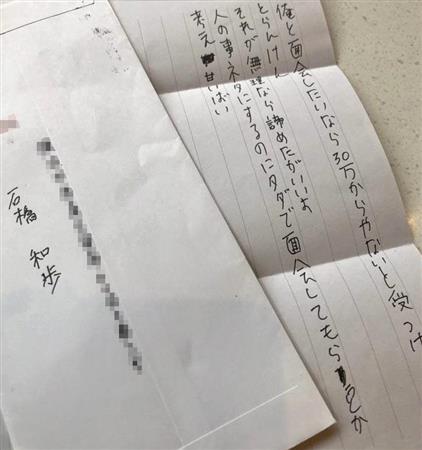 俺と面会したいなら30万からやないと受つけ
とらんけん
それが無理なら諦めたがいいよ
人の事ネタにするのにタダで面会してもらえとか
考え甘いばい
石橋和歩